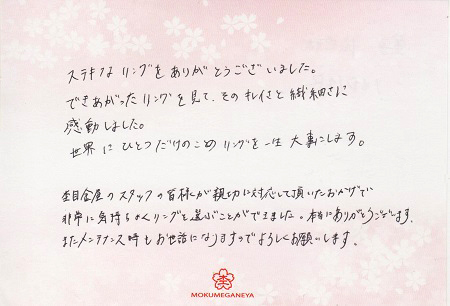 ステキな リングを ありがとうございました。
できあがった リングを見て、その キレイさと 繊細さに
感動しました。
世界に ひとつだけの この リングを 一生 大事にします。
杢目金屋の スタッフの 皆様が 親切に対応して頂いた おかげで
非常に 気持ちよく リングを 選ぶことが できました。本当にありがとうございます。
またメンテナンス時も お世話に なりますので よろしくお願いします。
杢
MOKUMEGANEYA